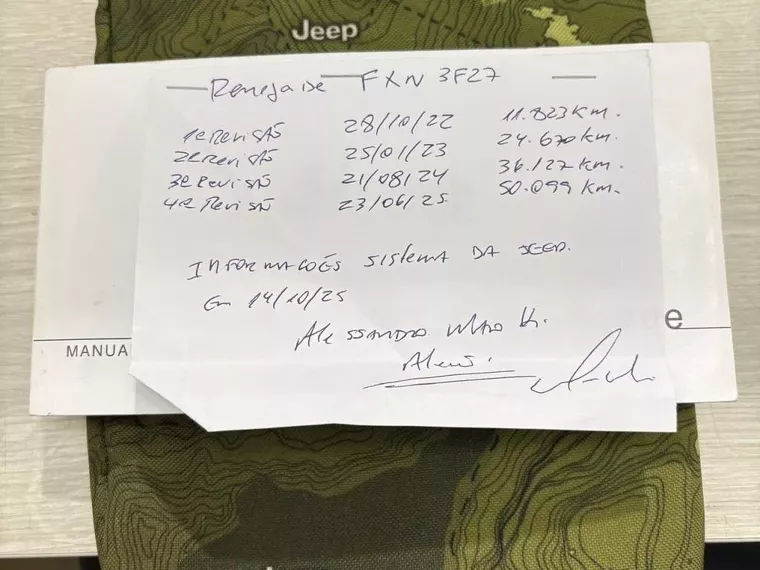 Jeep
Renegade FXN 3F27
1ª Revisão 28/10/22 11.823 Km.
2ª Revisão 25/01/23 24.670 Km.
3ª Revisão 21/08/24 36.127 Km.
4ª Revisão 23/06/25 50.099 Km.
INFORMAÇÕES SISTEMA DA JEEP.
Em 14/10/25
Alessandro
MANUA
e